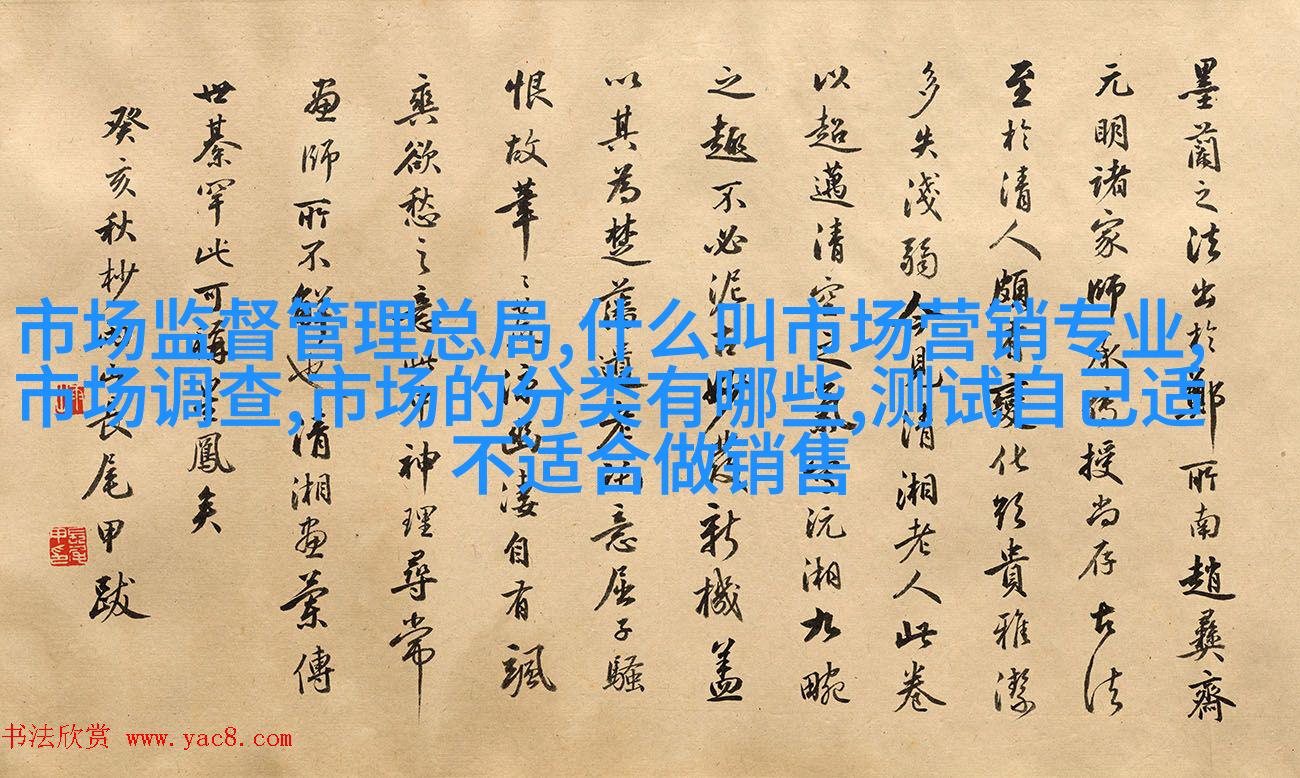 墨蘭之法出於鄭所南趙彝齋
元明諸家師承傳授尚存古法
至於清人頗
化
貴雅潔
多失淺弱今見清湘老人此卷
以超邁清空之
沅湘九畹
之趣不必泥古
新機蓋
以其為楚
意屈子騷
恨故筆
淒自有颯
爽欲愁之意此
神理尋常
畫師所不
也清湘畫蘭傳
世綦罕此可
鳳矣
癸亥秋杪
長尾甲跋
市场监督管理总局,什么叫市场营销专业,
市场调查,市场的分类有哪些,测试自己适
不适合做销售
书法欣赏 www.yac8.com